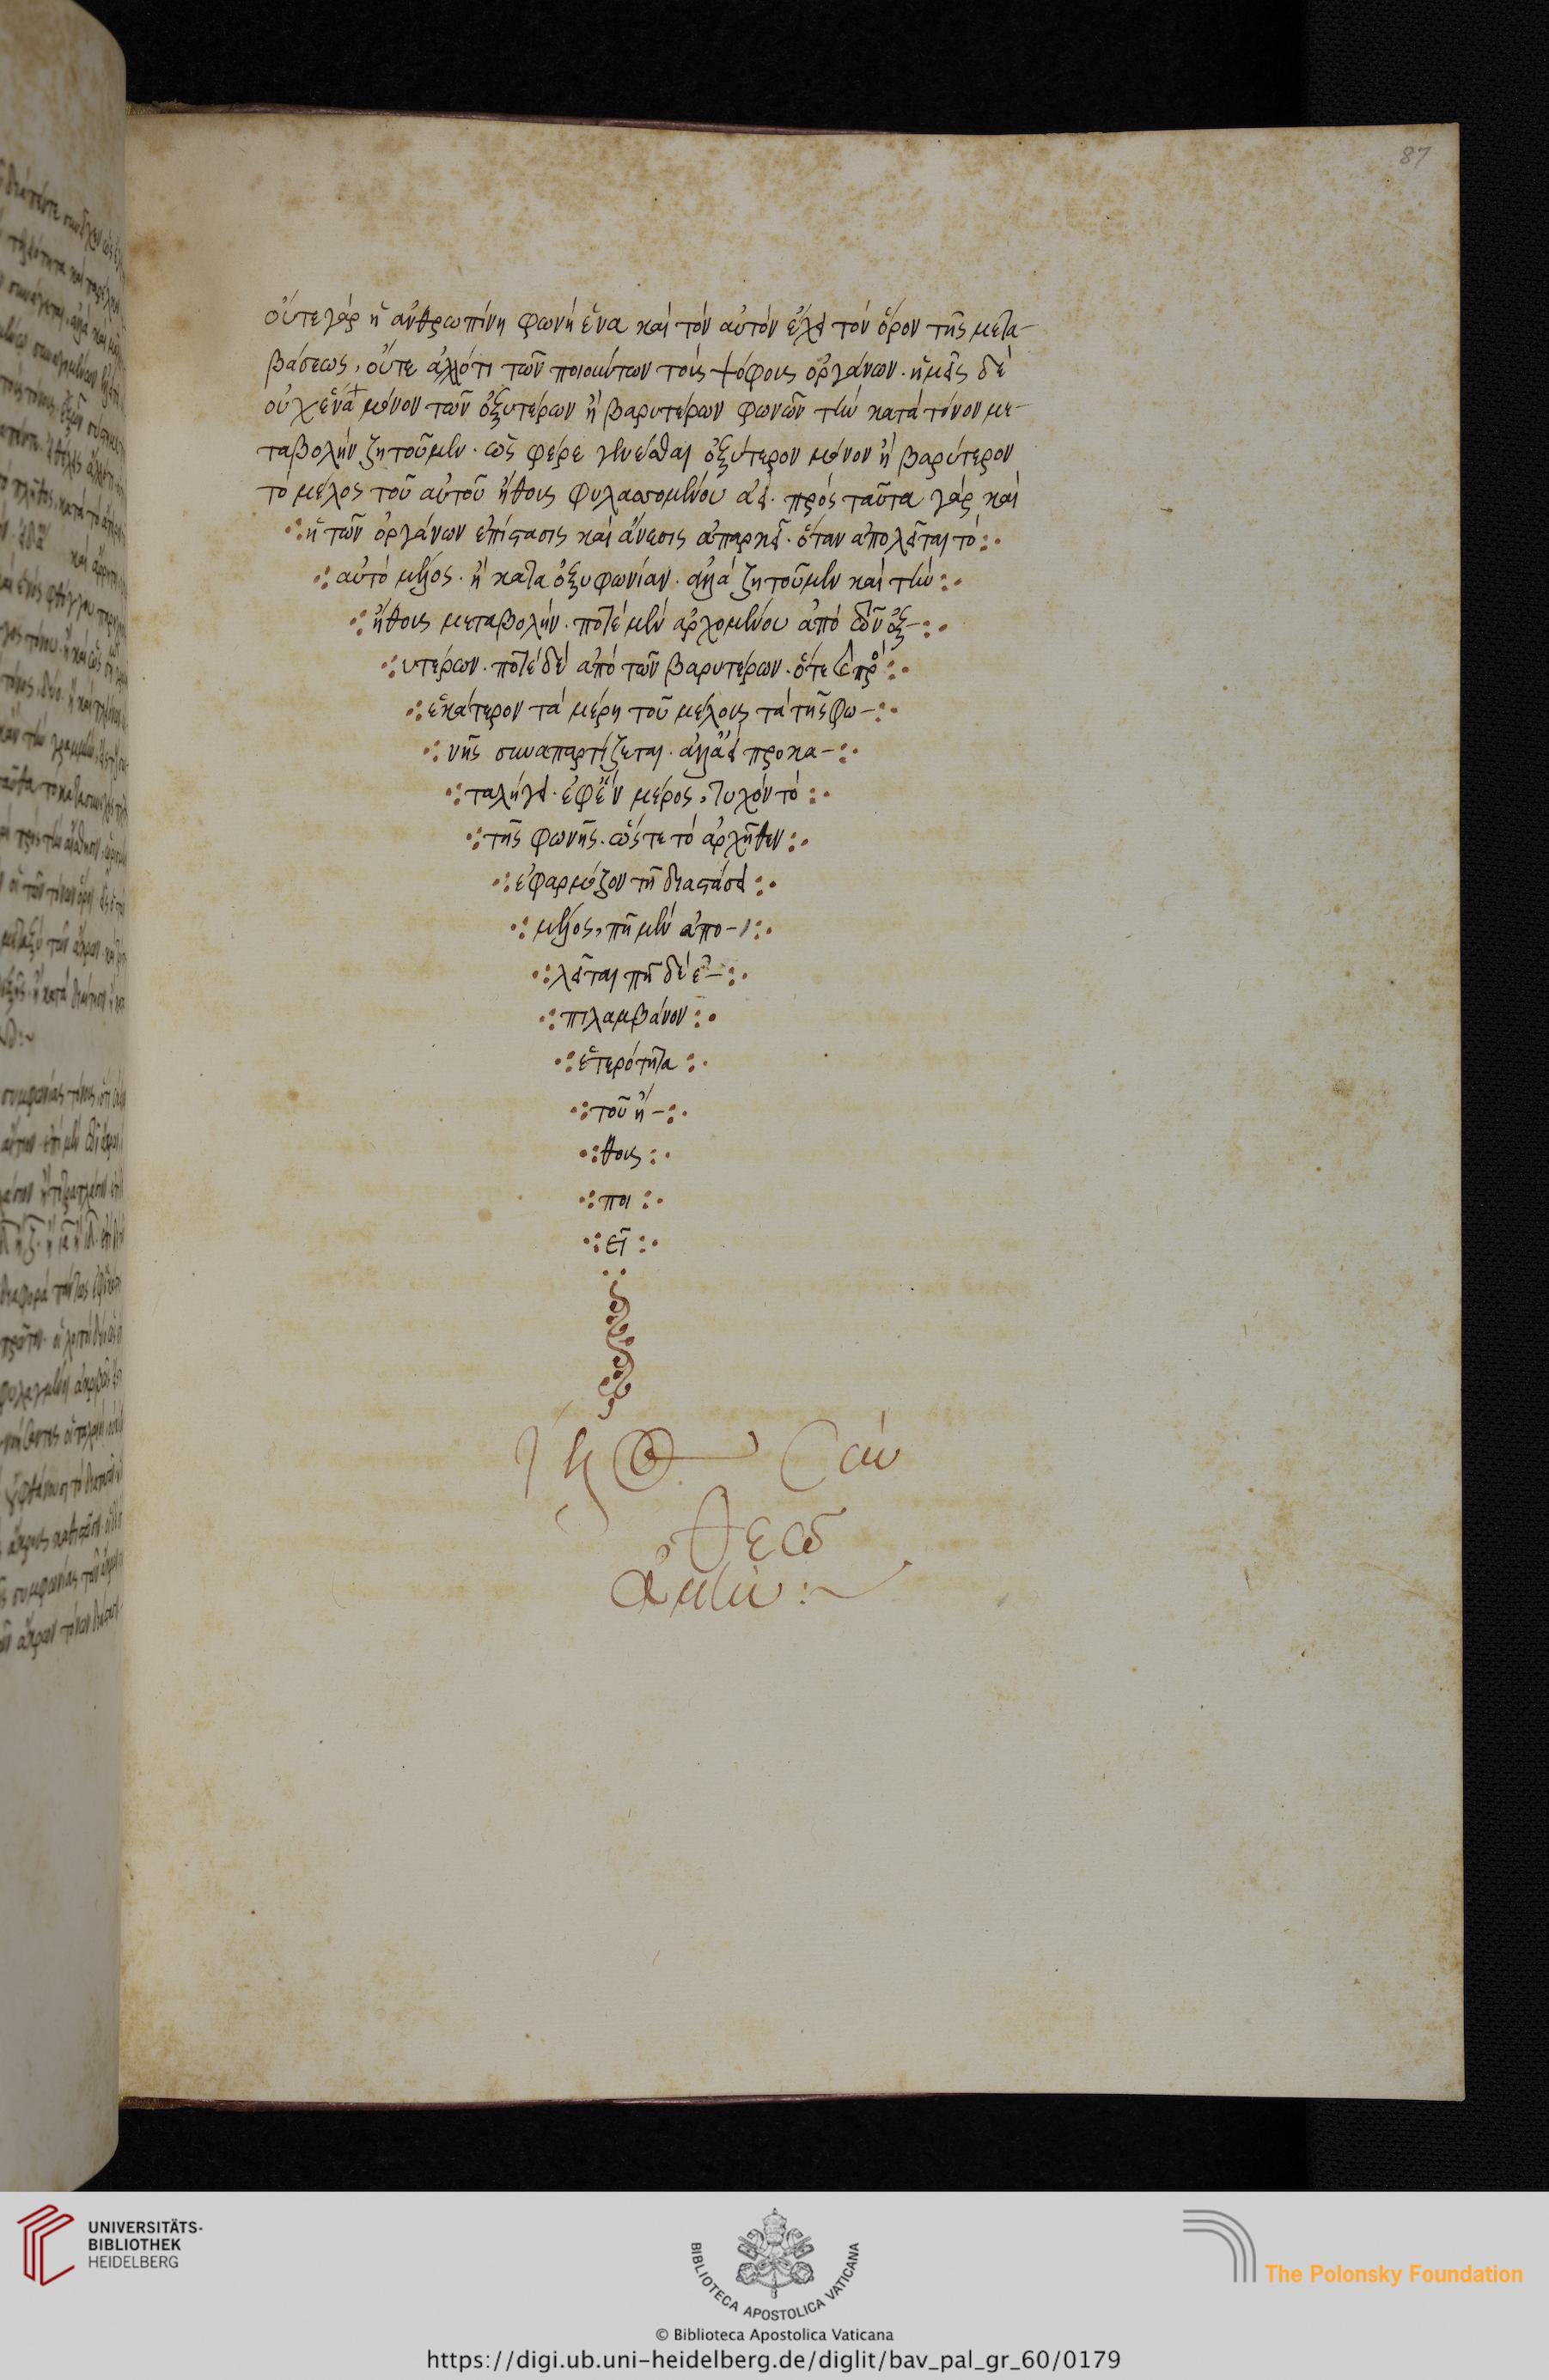 87
οὔτε γὰρ ἡ ἀνθρωπίνη φωνὴ ἕνα καὶ τὸν αὐτὸν ἔχει τὸν ὅρον τῆς μετα-
βάσεως, οὔτε ἄλλό τι τῶν ποιούντων τοὺς ψόφους ὀργάνων. ἡμεῖς δὲ
οὐχ ἕνα μόνον τῶν ὀξυτέρων ἢ βαρυτέρων φωνῶν τὴν κατὰ τόνον με-
ταβολὴν ζητοῦμεν. ὡς φέρε γενέσθαι ὀξύτερον μόνον ἢ βαρύτερον
τὸ μέλος τοῦ αὐτοῦ ἤθους φυλασσομένου ἀεί. πρὸς ταῦτα γὰρ καὶ
ἡ τῶν ὀργάνων ἐπίτασις καὶ ἄνεσις ἀπαρκεῖ. ὅταν ἀπολεῖται τὸ
αὐτὸ μέλος. ἢ κατα ὀξυφωνίαν. ἀλλὰ ζητοῦμεν καὶ τὴν
ἤθους μεταβολήν. ποτὲ μὲν ἀρχομένου ἀπὸ τῶν ὀξ-
υτέρων. ποτὲ δὲ ἀπὸ τῶν βαρυτέρων. ὅτε
ἑκάτερον τὰ μέρη τοῦ μέλους τὰ τῆς φω-
νῆς συναπαρτίζεται. ἀλλ' ἀεὶ προκα-
ταλήγει. ἐφ' ἓν μέρος, τυχὸν τὸ
τῆς φωνῆς. ὥστε τὸ ἀρχῆθεν
ἐφαρμόζον τῇ διαστάσει
μέλος, πῆ μὲν ἀπο-
λεῖται πῆ δὲ ἐ-
πιλαμβάνον
ἑτερότητα
τοῦ ἤ-
θους
ποι
εῖ
σὺν
θεῶ
ἀμήν:~
UNIVERSITÄTS-
BIBLIOTHEK
HEIDELBERG
BIBLIOTECA APOSTOLICA VATICANA
The Polonsky Foundation
© Biblioteca Apostolica Vaticana
https://digi.ub.uni-heidelberg.de/diglit/bav_pal_gr_60/0179